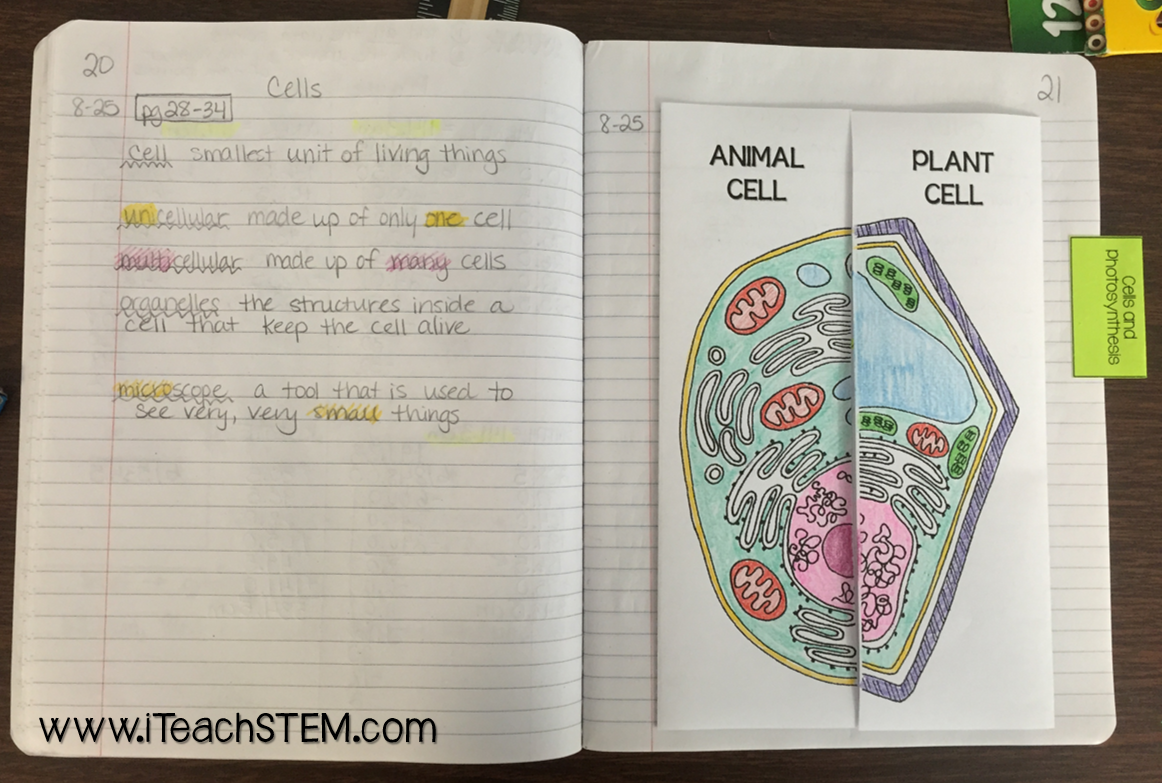 20
Cells
8-25 pg 28-34
cell smallest unit of living things
unicellular made up of only one cell
multicellular made up of many cells
organelles the structures inside a
cell that keep the cell alive
microscope a tool that is used to
see very, very small things
21
8-25
ANIMAL
CELL
PLANT
CELL
Cells and
Photosynthesis
12
www.iTeachSTEM.com